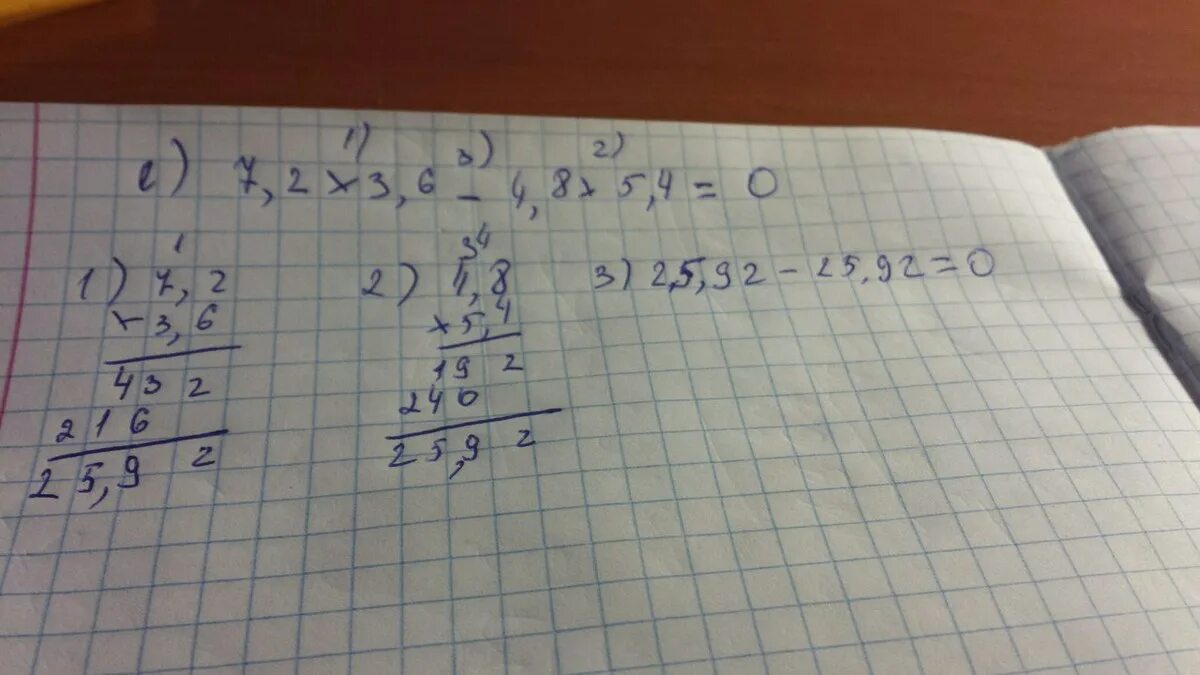 1) 3) 2)
е) 7,2 × 3,6 - 4,8 × 5,4 = 0
1
1) 7,2
× 3,6
432
216
25,92
34
2) 4,8
× 5,4
192
240
25,92
3) 25,92 - 25,92 = 0